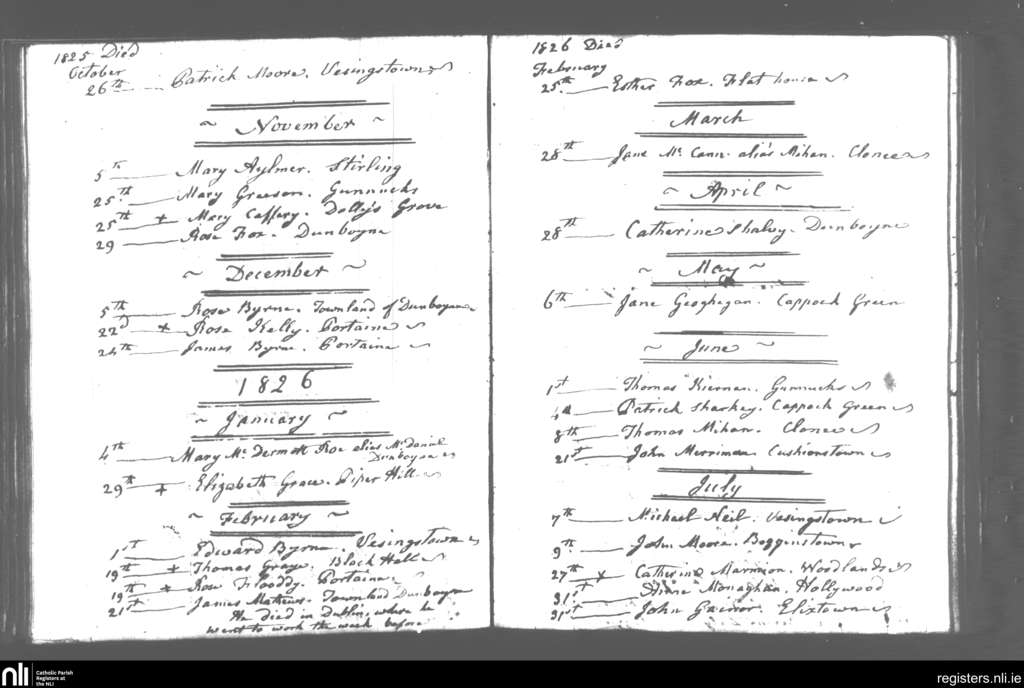 1825 Died
October
26th Patrick Moore. Vesingstown
~ November ~
5th Mary Aylmer. Stirling
25th Mary Greeson. Gunnucks
25th + Mary Caffery. Dolly's Grove
29 Rose Fox. Dunboyne
~ December ~
5th Rose Byrne. Townland of Dunboyne
22d + Rose Kelly. Portaine
24th James Byrne. Portaine
1826
~ January ~
4th Mary Mc Dermott Roe alias Mc Daniel
Dunboyne
29th + Elizabeth Grace. Piper Hill
~ February ~
1st Edward Byrne. Vesingstown
19th + Thomas Graye. Black Hall
19th + Rose Flooddy. Portaine
21st James Mathews. Townland Dunboyne
He died in Dublin, where he
went to work the week before
1826 Died
February
25th Esther Fox. Flat house
March
28th Jane Mc Cann alias Mihan. Clonee
~ April ~
28th Catherine Shalvy. Dunboyne
~ May ~
6th Jane Geoghegan. Cappock Green
~ June ~
1st Thomas Kiernan. Gunnucks
4th Patrick Sharkey. Cappock Green
8th Thomas Mihan. Clonee
21st John Merriman. Cushionstown
July
7th Michael Neil. Vesingstown
9th John Moore. Bogginstown
27th + Catherine Marmion. Woodlands
31st Anne Monaghan. Hollywood
31st John Gainor. Elixtown
nli
Catholic Parish
Registers at
the NLI
registers.nli.ie